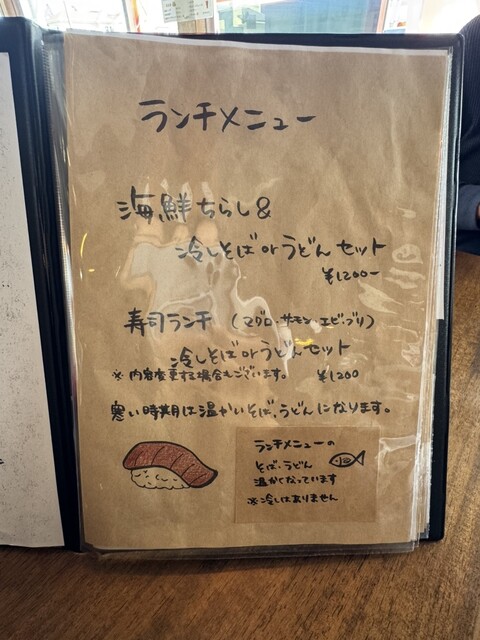 ランチメニュー
海鮮ちらし&
冷しそばorうどんセット
¥1200-
寿司ランチ (マグロ・サーモン・エビ・ブリ)
冷しそばorうどんセット
※内容変更する場合もございます。 ¥1200
寒い時期は温かいそば、うどんになります。
ランチメニューの
そば、うどん
温かくなっています
※冷しはありません